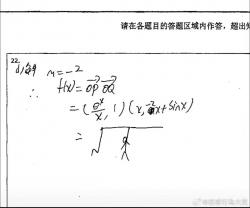 请在各题目的答题区域内作答，超出矩
22
(1) 解
m=-2
∴ f(x)=OP·OQ
=(e^x/x, 1)(x, -2x+sinx)
=√